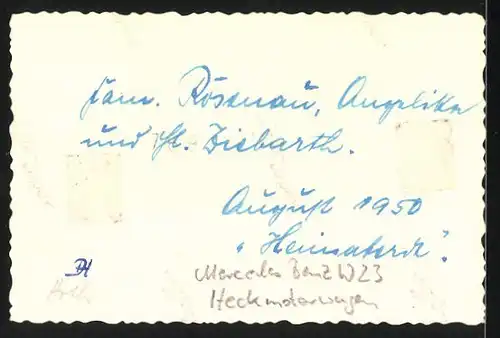 Fam. Rösenau, Angelika
und Fr. Diebarth.
August 1950
"Heimaterde".
Mercedes Benz W23
Heckmotorwagen